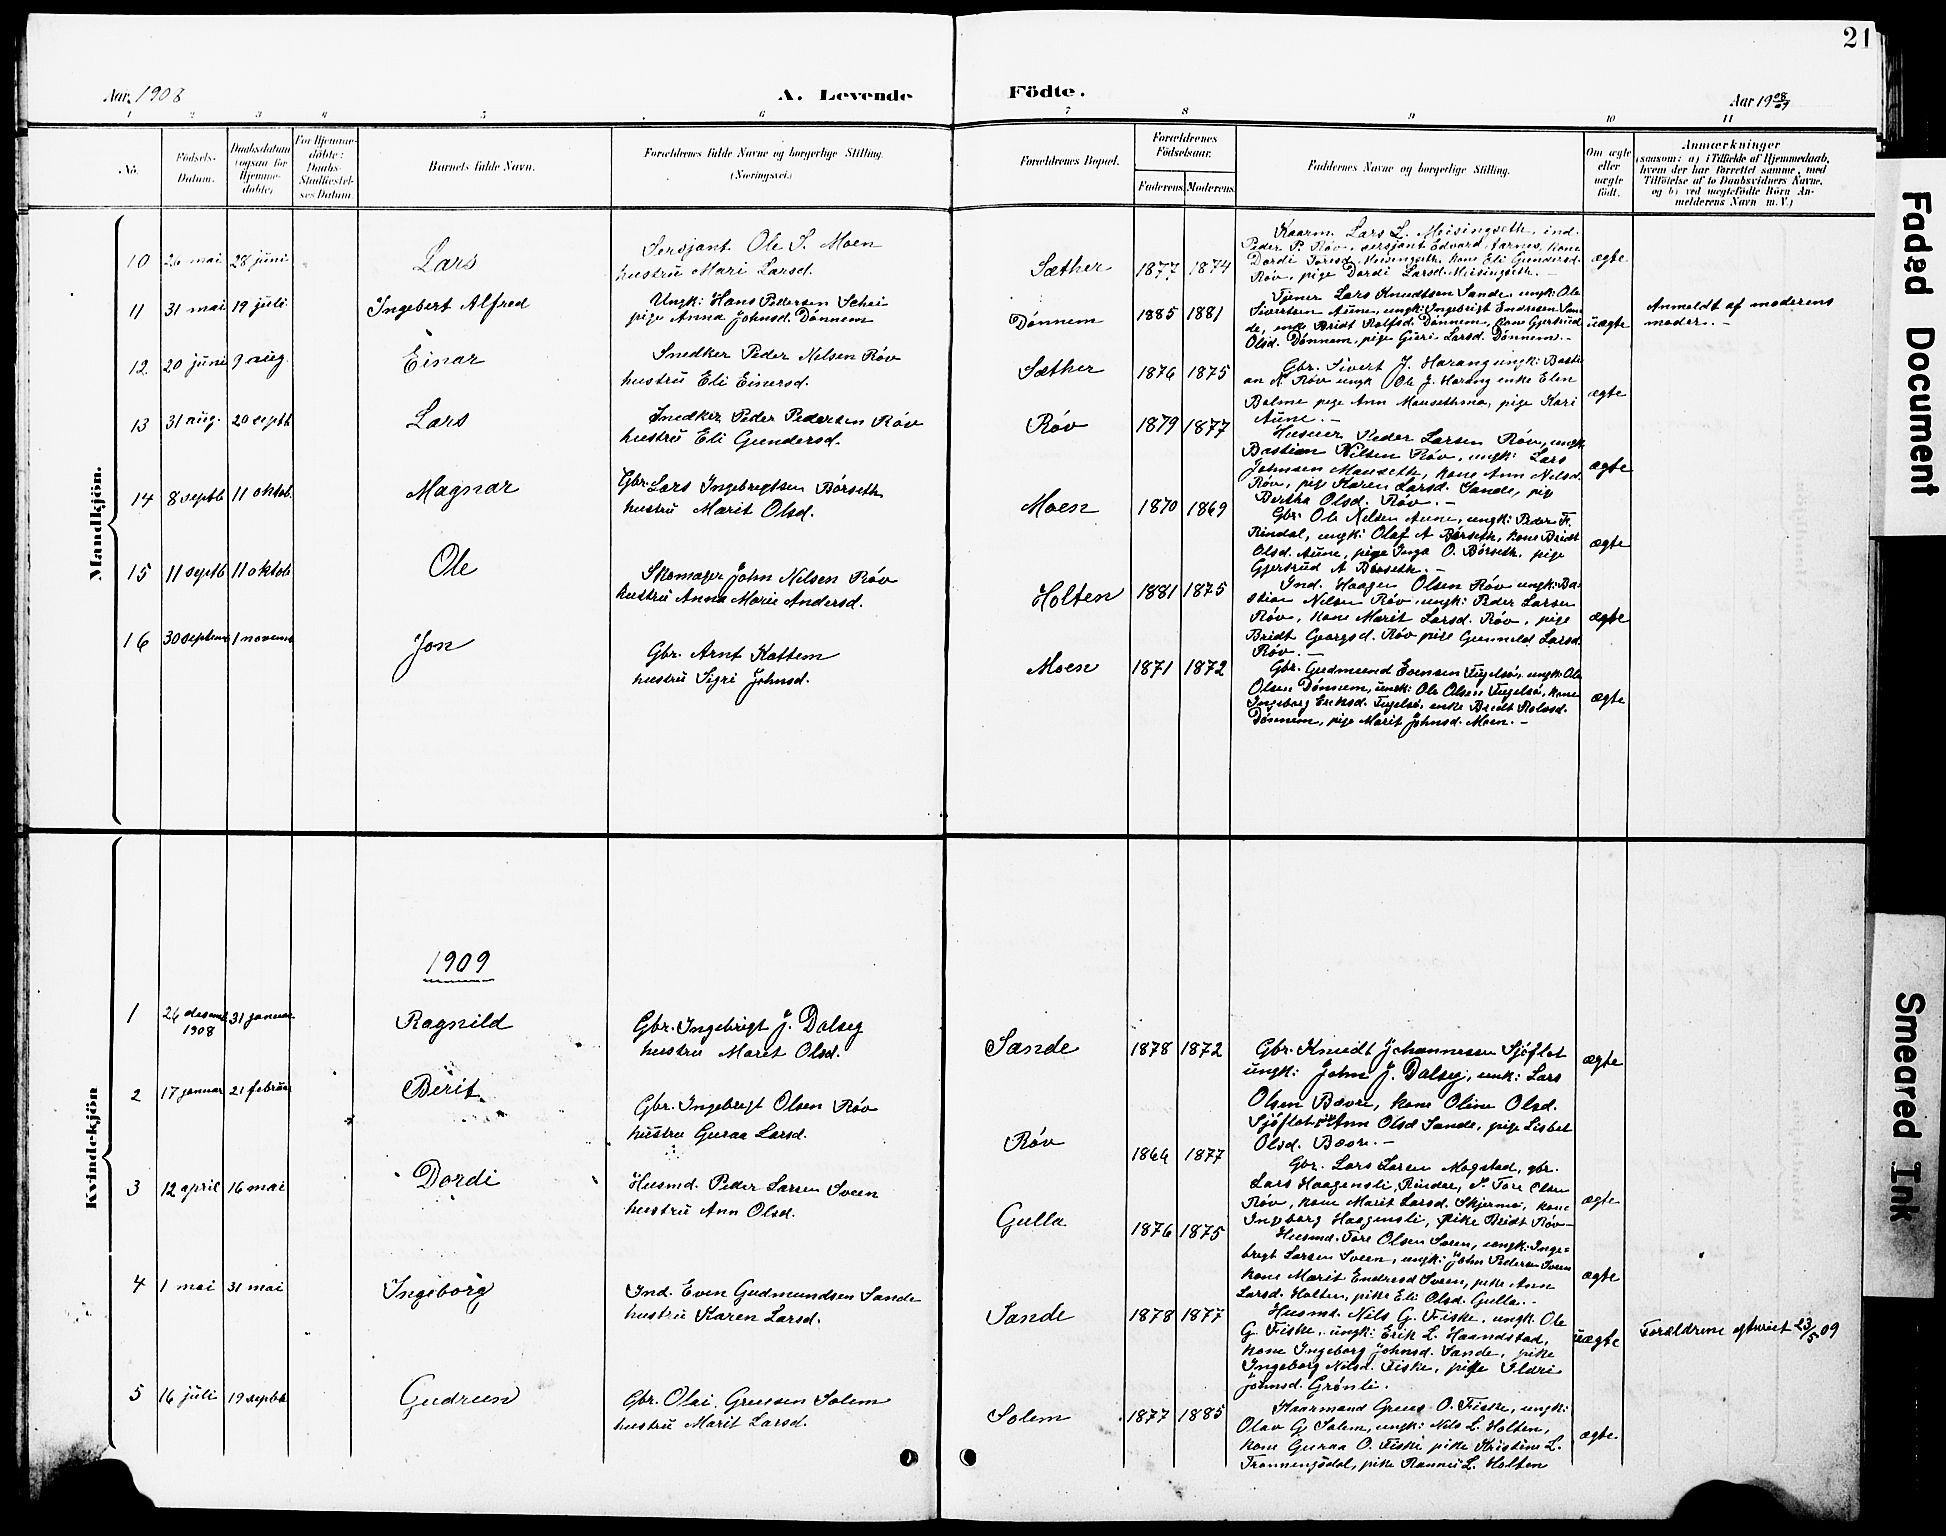 21
Aar 1908
A. Levende
Födte.
Aar 19 08/09
1 2 3 4 5 6 7 8 9 10 11
No.
Födsels-Datum.
Daabsdatum (ogsaa for Hjemme-döbte)
For Hjemme-döbte: Daabs-Stadfæstel-ses Datum.
Barnets fulde Navn.
Forældrenes fulde Navne og borgerlige Stilling. (Næringsvei.)
Forældrenes Bopæl.
Forældrenes Födselsaar.
Faderens. Moderens.
Faddernes Navne og borgerlige Stilling.
Om ægte eller uægte födt.
Anmærkninger
(saasom: a) i Tilfælde af Hjemmedaab,
hvem der har forrettet samme, med
Tilföielse af to Daabsvidners Navne,
og b) ved uægtefödte Börn An-
melderens Navn m. V.)
Mandkjön.
10 26 mai 28 juni Lars
Sersjant Ole S. Moen
hustru Mari Larsd.
Sæther 1877 1874
Kaarm. Lars L. Meisingseth, ind.
Peder P. Røv, sersjant Edvard Farnes, kone
Dordi Toresd. Meisingseth, kone Eli Gundersd.
Røv, pige Dordi Larsd. Meisingseth. -
ægte
11 31 mai 19 juli Ingebert Alfred
Ungk: Hans Pedersen Schei
pige Anna Johnsd. Dønnem
Dønnem 1885 1881
Tjener Lars Knudtsen Sande, ungk: Ole
Sivertsen Aune, ungk: Ingebrigt Endresen San-
de, enke Bridt Rolfsd. Dønnem, kone Gjertrud
Olsd. Dønnem, pige Guri Larsd. Dønnem. -
uægte
Anmeldt af moderens
moder. -
12. 20 june 9 aug. Einar
Snedker Peder Nilsen Røv
hustru Eli Einersd.
Sæther 1876 1875
Gbr. Sivert J. Harang ungk: Basti-
an N. Røv ungk Ole J. Harang enke Elen
Bolme pige Ann Mausethmo, pige Kari
Aune. -
ægte
13 31 aug. 20 septb Lars
Snedker Peder Pedersen Røv
hustru Eli Gundersd.
Røv 1879 1877
Husuer Peder Larsen Røv, ungk
Bastian Nilsen Røv, ungk: Lars
Johnsen Mauseth, kone Ann Nilsd.
Røv, pige Karen Larsd. Sande, pig
Bertha Olsd. Røv. -
ægte
14 8 septb 11 oktob. Magnar
Gbr. Lars Ingebrigtsen Børseth
hustru Marit Olsd.
Moen 1870 1869
Gbr. Ole Nilsen Aune, ungk: Peder F.
Rindal, ungk: Olaf A Børseth, kone Bridt
Olsd. Aune, pige Inga O. Børseth, pige
Gjertrud A Børseth. -
ægte
15 11 septb 11 oktob Ole
Skomager John Nilsen Røv
hustru Anna Marie Andersd.
Holten 1881 1875
Ind. Haagen Olsen Røv ungk: Ba-
stian Nilsen Røv, ungk: Peder Larsen
Røv, kone Marit Larsd. Røv, pige
Bridt Georgsd. Røv pige Gunneld Larsd.
Røv. -
ægte
16 30 septemb 1 novemb Jon
Gbr. Arnt Kattem
hustru Sigri Johnsd.
Moen 1871 1872
Gbr. Gudmund Evensen Fugelsø, ungk: Ole
Olsen Dønnem, ungk: Ole Olsen Fugelsø, kone
Ingeborg Eriksd. Fugelsø, enke Bridt Rolvsd.
Dønnem, pige Marit Johnsd. Moen. -
ægte
Kvindekjön
1909
1 26 desemb 1908 31 januar Ragnild
Gbr. Ingebrigt J. Dalseg
hustru Marit Olsd.
Sande 1878 1872
Gbr. Knudt Johannessen Sjøflot
ungk: John J. Dalseg, unk: Lars
Olsen Bævre, kone Oline Olsd.
Sjøflot, Ann Olsd Sande, pige Lisbet
Olsd. Bævre. -
ægte
2 17 januar 21 februar Berit
Gbr. Ingebrigt Olsen Røv
hustru Guraa Larsd.
Røv 1864 1877
Gbr. Lars Larsen Mogstad, gbr.
Lars Haagensli, Rindal, Tore Olsen
Røv, kone Marit Larsd. Skjermo, kone
Ingeborg Haagensli, pike Bridt Røv-
ægte
3 12 april 16 mai Dordi
Husmd. Peder Larsen Sveen
hustru Ann Olsd.
Gulla 1876 1875
Husmd. Tore Olsen Sveen, ungk: Inge-
brigt Larsen Sveen, ungk: John Pedersen Sveen
kone Marit Endresd Sveen, pike Ann
Larsd. Holten, pike Eli Olsd. Gulla. -
ægte
4 1 mai 31 mai Ingeborg
Ind. Even Gudmundsen Sande
hustru Karen Larsd.
Sande 1878 1877
Husmd. Nils G. Fiske, ungk. Ole
G. Fiske, ungk: Erik L. Haandstad,
kone Ingeborg Johnsd. Sande, pike
Ingeborg Nilsd. Fiske, pike Ildri
Johnsd. Grønli.
uægte
Foreldrene egteviet 23/5 09
5 16 juli 19 septbb Gudrun
Gbr. Olai Gruesen Solem
hustru Marit Larsd.
Solem 1877 1885
Kaarmand Grues O. Fiske, ungk:
Olav G. Solem, ungk: Nils L. Holten,
kone Guraa O. Fiske pike Kristine L.
Tronnengsdal, pike Rannei L. Holten
ægte.
Faded Document
Smeared Ink